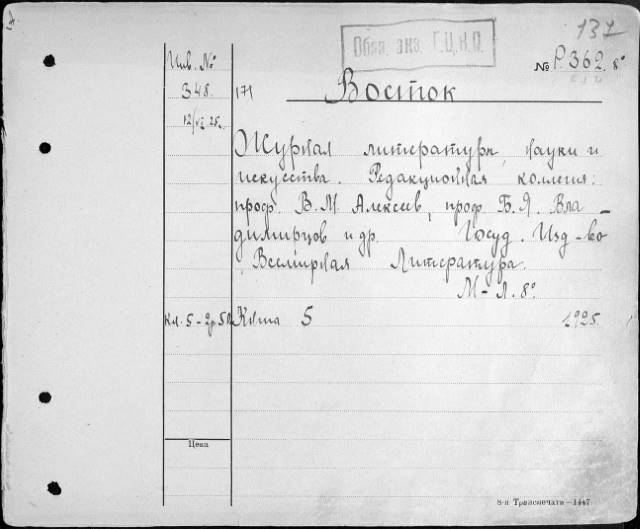 137
Обяз. экз. Г.Ц.К.П.
Инв. № № Р.362. 8°
348. 171 Восток
12/VI 25г.
Журнал литературы, науки и
искусства. Редакционная коллегия:
проф. В.М. Алексеев, проф. Б.Я. Вла-
димирцов и др. Госуд. Изд-во
"Всемирная Литература.
М-Л. 8°
Кн. 5 - 2р.50 Книга 5 1925.
Цена
8-я Транспечати—1447